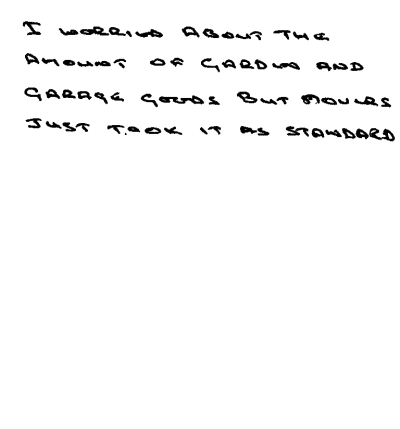 I WORRIED ABOUT THE
AMOUNT OF GARDEN AND
GARAGE GOODS BUT MOVERS
JUST TOOK IT AS STANDARD